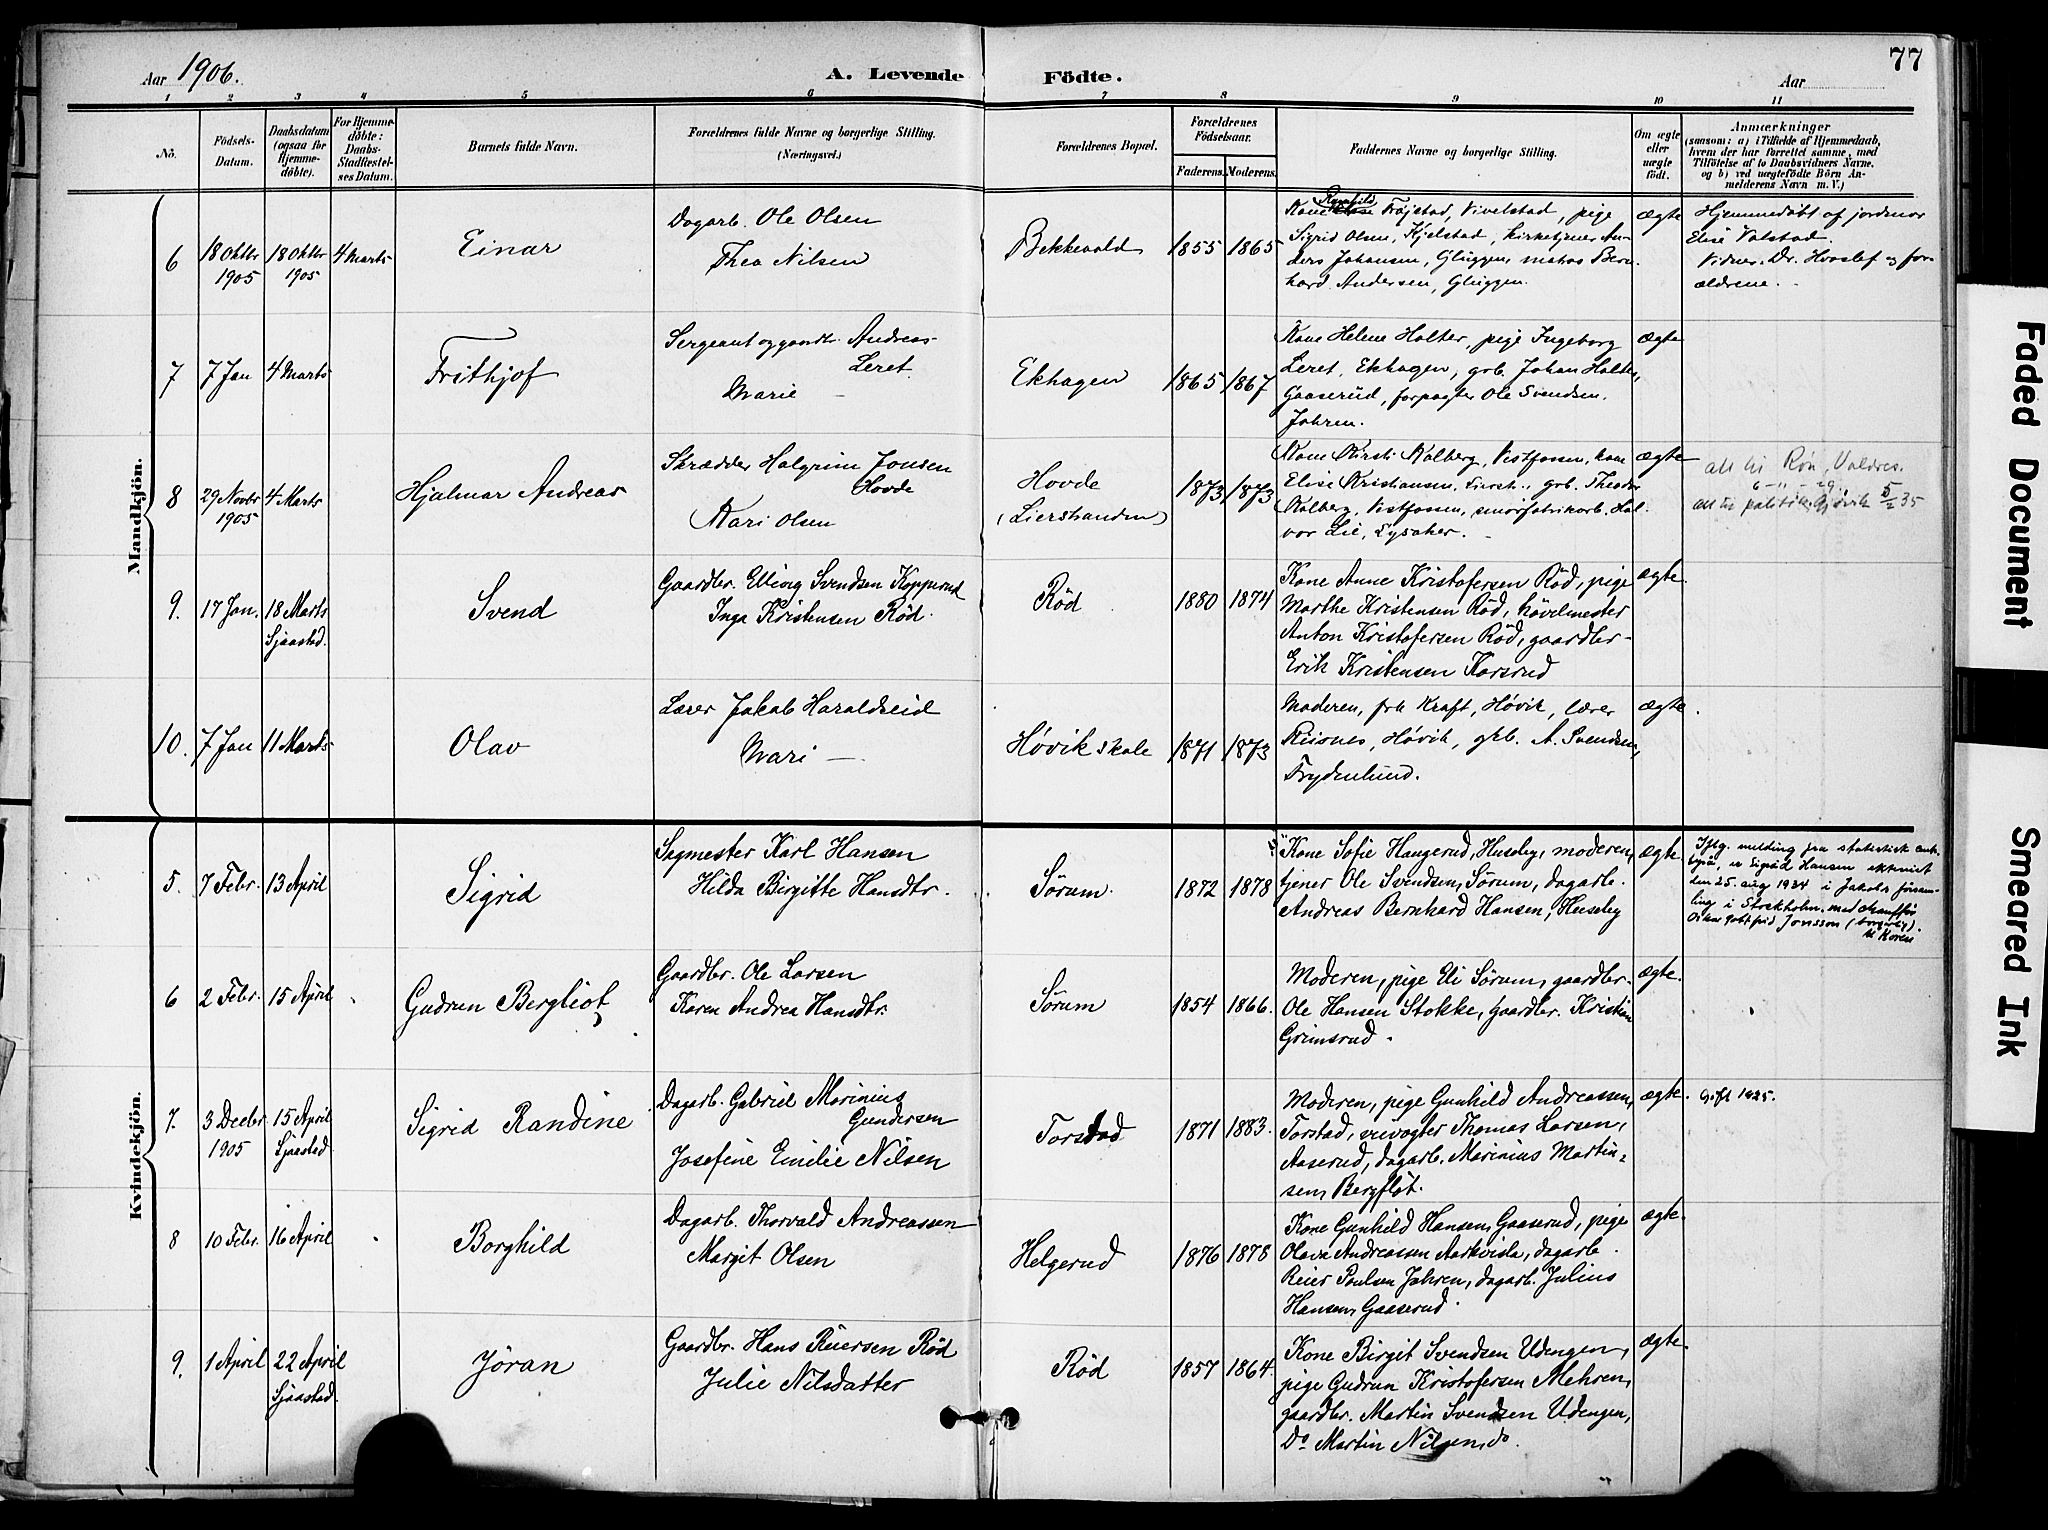 Aar 1906.
A. Levende Födte.
Aar
77
1 2 3 4 5 6 7 8 9 10 11
No.
Födsels-
Datum.
Daabsdatum
(ogsaa for
Hjemme-
döbte).
For Hjemme-
döbte:
Daabs-
Stadfestel-
ses Datum.
Barnets fulde Navn.
Forældrenes fulde Navne og borgerlige Stilling.
(Næringsvei.)
Forældrenes Bopæl.
Forældrenes
Födselsaar.
Faderens. Moderens.
Faddernes Navne og borgerlige Stilling.
Om ægte
eller
uægte
födt.
Anmærkninger
(saasom: a) i Tilfælde af Hjemmedaab,
hvem der har forrettet samme, med
Tilföielse af to Daabsvidners Navne.
og b) ved uægtefödte Börn An-
melderens Navn m. V.)
Mandkjön.
6
18 Oktbr
1905
18 Oktbr
1905
4 Marts
Einar
Dagarb. Ole Olsen
Thea Nilsen
Bekkevold
1855
1865
Kone Ragnhild Trøjstad, Vivelstad, pige
Sigrid Olsen, Kjelstad, kirketjener An-
ders Johansen, Gluggen, matros Bern-
hard Andersen, Gluggen.
ægte
Hjemmedøbt af jordmor
Elise Valstad.
Vidner: Dr. Hvoslef og for-
ældrene.
7
7 Jan
4 Marts
Frithjof
Sergeant og gaardbr. Andreas
Leret
Marie —
Ekhagen
1865
1867
Kone Helene Holter, pige Ingeborg
Leret, Ekhagen, grb. Johan Holter,
Gaaserud, forpagter Ole Svendsen.
Jahren.
ægte
8
29 Novbr
1905
4 Marts
Hjalmar Andreas
Skrædder Halgrim Jonsen
Hovde
Kari Olsen
Hovde
(Lierstranden)
1873
1873
Kone Kirsti Kolberg, Vestfossen, kone
Elise Kristiansen, Lierstr., grb. Theodor
Kolberg, Vestfossen, smørfabrikarb. Hal-
vor Lie, Lysaker.
ægte
att til Røn, Valdres.
6 - 11 - 29
att til politik. Gjøvik 5/2 35
9.
17 Jan.
18 Marts
Sjaastad.
Svend
Gaardbr. Elling Svendsen Kopperud
Inga Kristensen Röd.
Röd
1880
1874
Kone Anne Kristofersen Röd, pige
Marthe Kristensen Röd, hövelmester
Anton Kristofersen Röd, gaardbr-
Erik Kristensen Korsrud
ægte.
10.
7 Jan
11 Marts
Olav
Lærer Jakob Haraldseid
Mari —
Høvik skole
1871
1873
Moderen, frk Kraft, Høvik, lærer
Risnes, Høvik, grb. A. Svendsen,
Frydenlund.
ægte.
Kvindekjön.
5.
7 Febr.
13 April
Sigrid
Sagmester Karl Hansen
Hilda Birgitte Hansdtr.
Sørum.
1872
1878
Kone Sofie Haugerud, Huseby, moderen,
tjener Ole Svendsen, Sørum, dagarb.
Andreas Bernhard Hansen, Huseby
ægte
Iflg. melding fra statistisk sent.
byrå, er Sigrid Hansen ekteviet
den 25. aug 1934 i Jakobs försam-
ling i Stockholm med chauffør
Oskar Gottfrid Jonsson (borgerlig).
M Koren
6
2 Febr.
15 April
Gudrun Bergliot
Gaardbr. Ole Larsen
Karen Andrea Hansdtr.
Sørum
1854
1866.
Moderen, pige Eli Sørum, gaardbr.
Ole Hansen Stokke, gaardbr. Kristian
Grimsrud.
ægte.
7.
3 Decbr
1905
15 April
Sjaastad
Sigrid Randine
Dagarb. Gabriel Marinius
Gundersen
Josefine Emilie Nilsen
Torstad
1871
1883.
Moderen, pige Gunhild Andreassen,
Torstad, veivogter Thomas Larsen,
Aaserud, dagarb. Marinius Martin-
sen, Bergfløt.
ægte.
Gift 1925.
8
10 Febr.
16 April
Borghild
Dagarb. Thorvald Andreassen
Margit Olsen
Helgerud
1876
1878
Kone Gunhild Hansen, Gaaserud, pige
Olava Andreassen Aarkvisla, dagarb.
Reier Poulsen Jahren, dagarb. Julius
Hansen, Gaaserud.
ægte.
9.
1 April
22 April
Sjaastad.
Jöran
Gaardbr. Hans Reiersen Röd
Julie Nilsdatter
Röd
1857
1864.
Kone Birgit Svendsen Udengen,
pige Gudrun Kristofersen Mehren,
gaardbr. Martin Svendsen Udengen,
Do Martin Nilsen, do.
ægte.
Faded Document
Smeared Ink